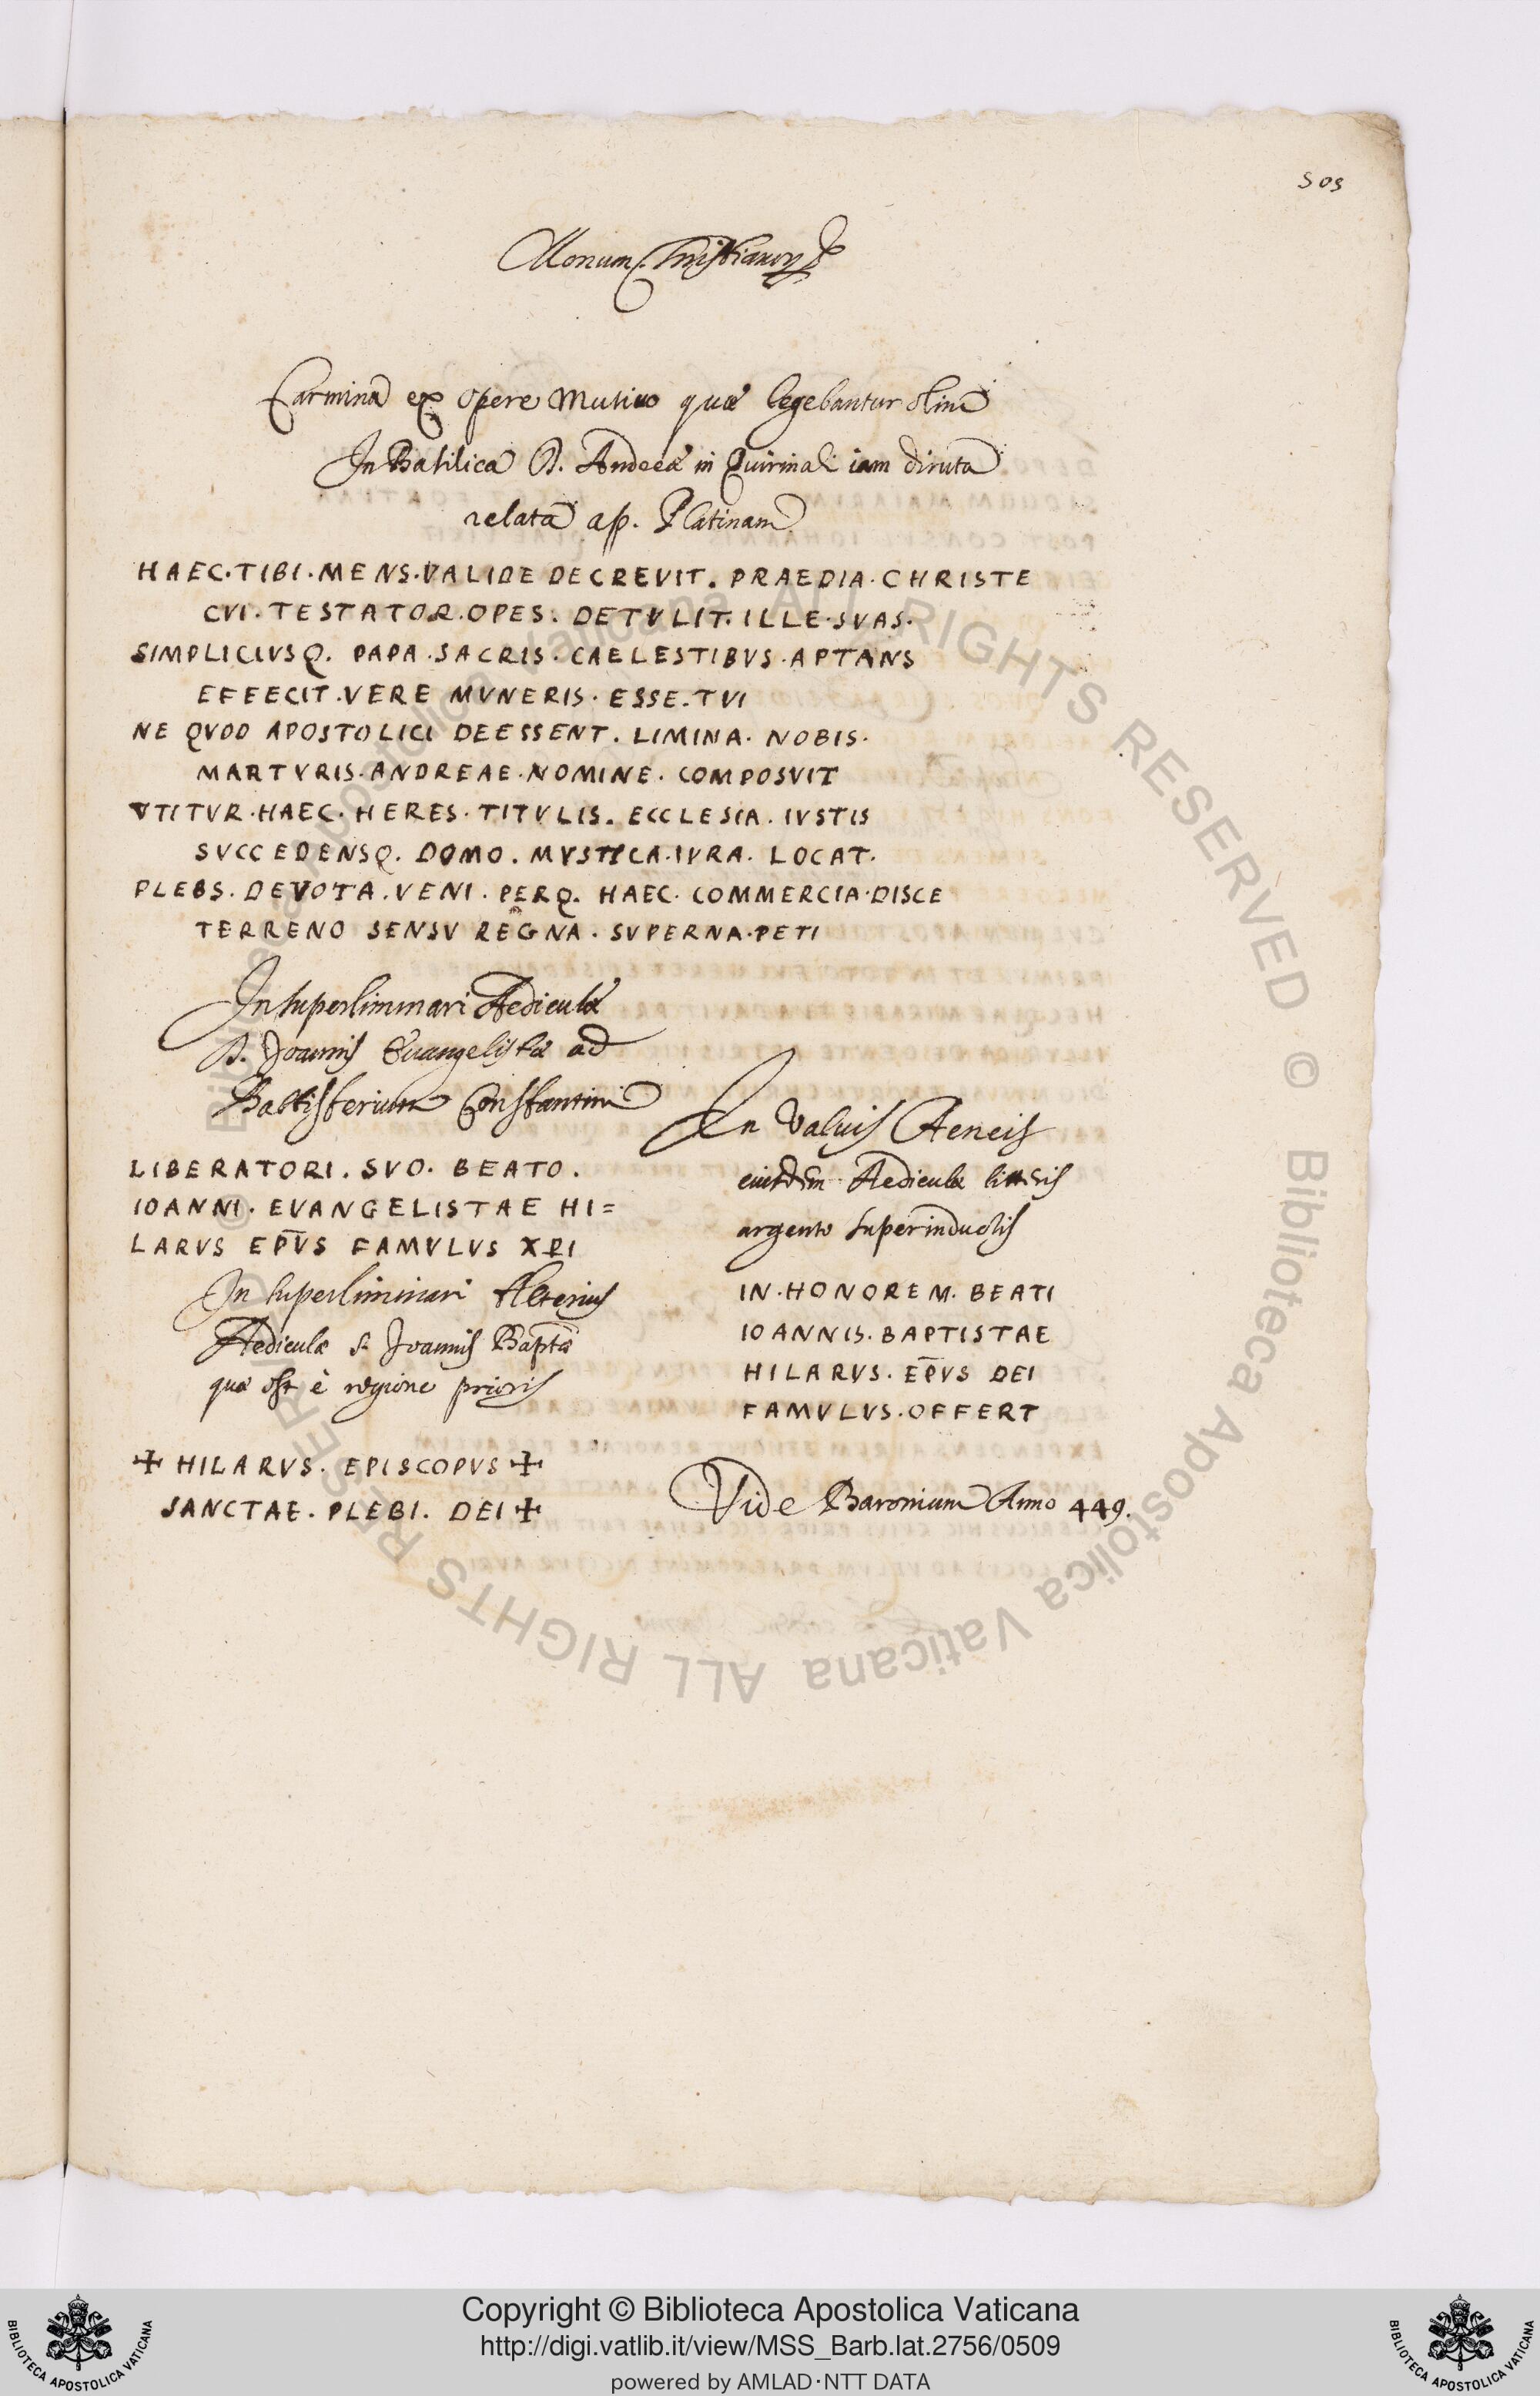 505
Monum. Christianor.
Carmina ex opere Musivo quæ legebantur olim
In Basilica S. Andreæ in Quirinali iam diruta
relata ap. Platinam
HAEC·TIBI·MENS·VALIDE DECREVIT. PRAEDIA·CHRISTE
CVI·TESTATOR·OPES. DETVLIT·ILLE·SVAS.
SIMPLICIVSQ. PAPA·SACRIS·CAELESTIBVS·APTANS
EFEECIT·VERE MVNERIS·ESSE·TVI
NE QVOD APOSTOLICI DEESSENT. LIMINA. NOBIS.
MARTVRIS·ANDREAE·NOMINE. COMPOSVIT
VTITVR·HAEC·HERES·TITVLIS. ECCLESIA. IVSTIS
SVCCEDENSQ. DOMO. MVSTICA·IVRA. LOCAT.
PLEBS. DEVOTA·VENI·PERQ. HAEC·COMMERCIA·DISCE
TERRENO SENSV REGNA·SVPERNA·PETI
In superliminari Aediculæ
S. Joannis Evangelistæ ad
Battisterium Constantini
LIBERATORI. SVO. BEATO.
IOANNI. EVANGELISTAE HI=
LARVS EPV̄S FAMVLVS XPI
In superliminari Alterius
Aediculæ S. Joannis Baptæ
quæ est è regione prioris
✠ HILARVS. EPISCOPVS ✠
SANCTAE. PLEBI. DEI ✠
In valvis Aeneis
eiusdem Aediculæ litteris
argento superinductis
IN·HONOREM. BEATI
IOANNIS. BAPTISTAE
HILARVS. EP̄VS DEI
FAMVLVS·OFFERT
Vide Baronium Anno 449.
© Biblioteca Apostolica Vaticana ALL RIGHTS RESERVED © Biblioteca Apostolica Vaticana ALL RIGHTS RESERVED
BIBLIOTECA APOSTOLICA VATICANA
Copyright © Biblioteca Apostolica Vaticana
http://digi.vatlib.it/view/MSS_Barb.lat.2756/0509
powered by AMLAD·NTT DATA
BIBLIOTECA APOSTOLICA VATICANA